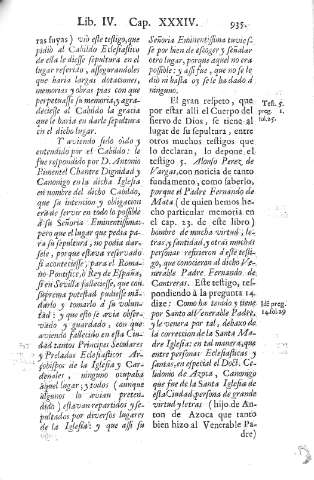 Lib. IV. Cap. XXXIV. 935.
ras suyas) vió este testigo, que
pidió al Cabildo Eclesiastico
de ella le diesse sepultura en el
lugar referido, assegurandoles
que haria largas dotaciones,
memorias y obras pias con que
perpetuasse su memoria, y agra-
deciesse al Cabildo la gracia
que le hacia en darle sepultura
en el dicho lugar.
Y aviendo sido oido y
entendido por el Cabildo: le
fue respondido por D. Antonio
Pimentel Chantre Dignidad y
Canonigo en la dicha Iglesia
en nombre del dicho Cabildo,
que su intencion y obligacion
era de servir en todo lo possible
á su Señoria Eminentissima:
pero que el lugar que pedia pa-
ra su sepultura, no podia dar-
sele, porque estava reservado
si aconteciesse, para el Roma-
no Pontifice, ò Rey de España,
si en Sevilla falleciesse, que con
suprema potestad pudiesse má-
darlo y tomarlo á su volun-
tad: y que esto se avia obser-
vado y guardado, con que
aviendo fallecido en esta Ciu-
dad tantos Principes Seculares
y Prelados Eclesiasticos Ar-
çobispos de la Iglesia y Car-
denales, ninguno ocupaba
aquel lugar; y todos (aunque
algunos lo avian preten-
dido) estavan repartidos y se-
pultados por diversos lugares
de la Iglesia: y que assi su
Señoria Eminentissima tuvies-
se por bien de escoger y señalar
otro lugar, porque aquel no era
possible: y assi fue, que no se le
dió ni hasta oy se le ha dado á
ninguno.
El gran respeto, que
por estar alli el Cuerpo del
siervo de Dios, se tiene al
lugar de su sepultura, entre
otros muchos testigos que
lo declaran, lo depone el
testigo 5. Alonso Perez de
Vargas, con noticia de tanto
fundamento, como saberlo,
porque el Padre Fernando de
Mata (de quien hemos he-
cho particular memoria en
el cap. 23. de este libro)
hombre de mucha virtud, le-
tras, y santidad, y otras muchas
personas refirieron á este testi-
go, que conocieron al dicho Ve-
nerable Padre Fernando de
Contreras. Este testigo, res-
pondiendo á la pregunta 14
dize: Como ha tenido y tiene
por Santo al Venerable Padre,
y le venera por tal, debaxo de
la correccion de la Santa Ma-
dre Iglesia: en tal manera, que
entre personas Eclesiasticas y
santas, en especial el Doct. Ce-
ledonio de Azoca, Canonigo
que fue de la Santa Iglesia de
esta Ciudad, persona de grande
virtud y letras (hijo de An-
ton de Azoca que tanto
bien hizo al Venerable Pa-
dre)
Test. 5.
preg. 1.
fol. 25.
preg.
14. fol. 29